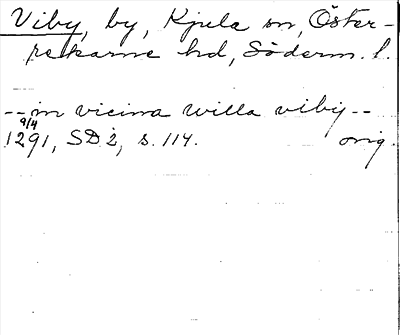 Viby, by, Kjula sn, Öster-
rekarne hd, Söderm. l.
-- in vicina willa viby --
9/4
1291, SD 2, s. 114. orig.